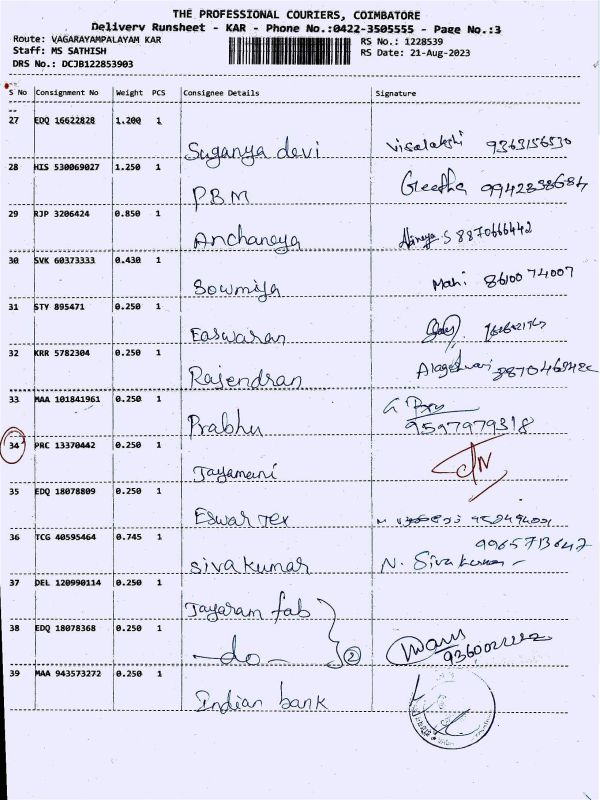 THE PROFESSIONAL COURIERS, COIMBATORE
Delivery Runsheet - KAR - Phone No.:0422-3505555 - Page No.:3
Route: VAGARAYAMPALAYAM KAR
RS No.: 1228539
Staff: MS SATHISH
RS Date: 21-Aug-2023
DRS No.: DCJB122853903
S No Consignment No Weight PCS Consignee Details Signature
27 EDQ 16622828 1.200 1
Suganya devi Visalakshi 9363156530
28 HIS 530069027 1.250 1
PBM Geetha 9942838684
29 RJP 3206424 0.850 1
Anchaneya S 8870666442
30 SVK 60373333 0.430 1
Sowmiya Mahi 8610074007
31 STY 895471 0.250 1
Easwaran
32 KRR 5782304 0.250 1
Rajendran
33 MAA 101841961 0.250 1
Prabhu 9597979318
34 PRC 13370442 0.250 1
Jayamani
35 EDQ 18078809 0.250 1
Eswar Tex
36 TCG 40595464 0.745 1
9965713647
sivakumar N. Sivakumar
37 DEL 120990114 0.250 1
Jayaram fab
38 EDQ 18078368 0.250 1
-do- 2
39 MAA 943573272 0.250 1
Indian bank